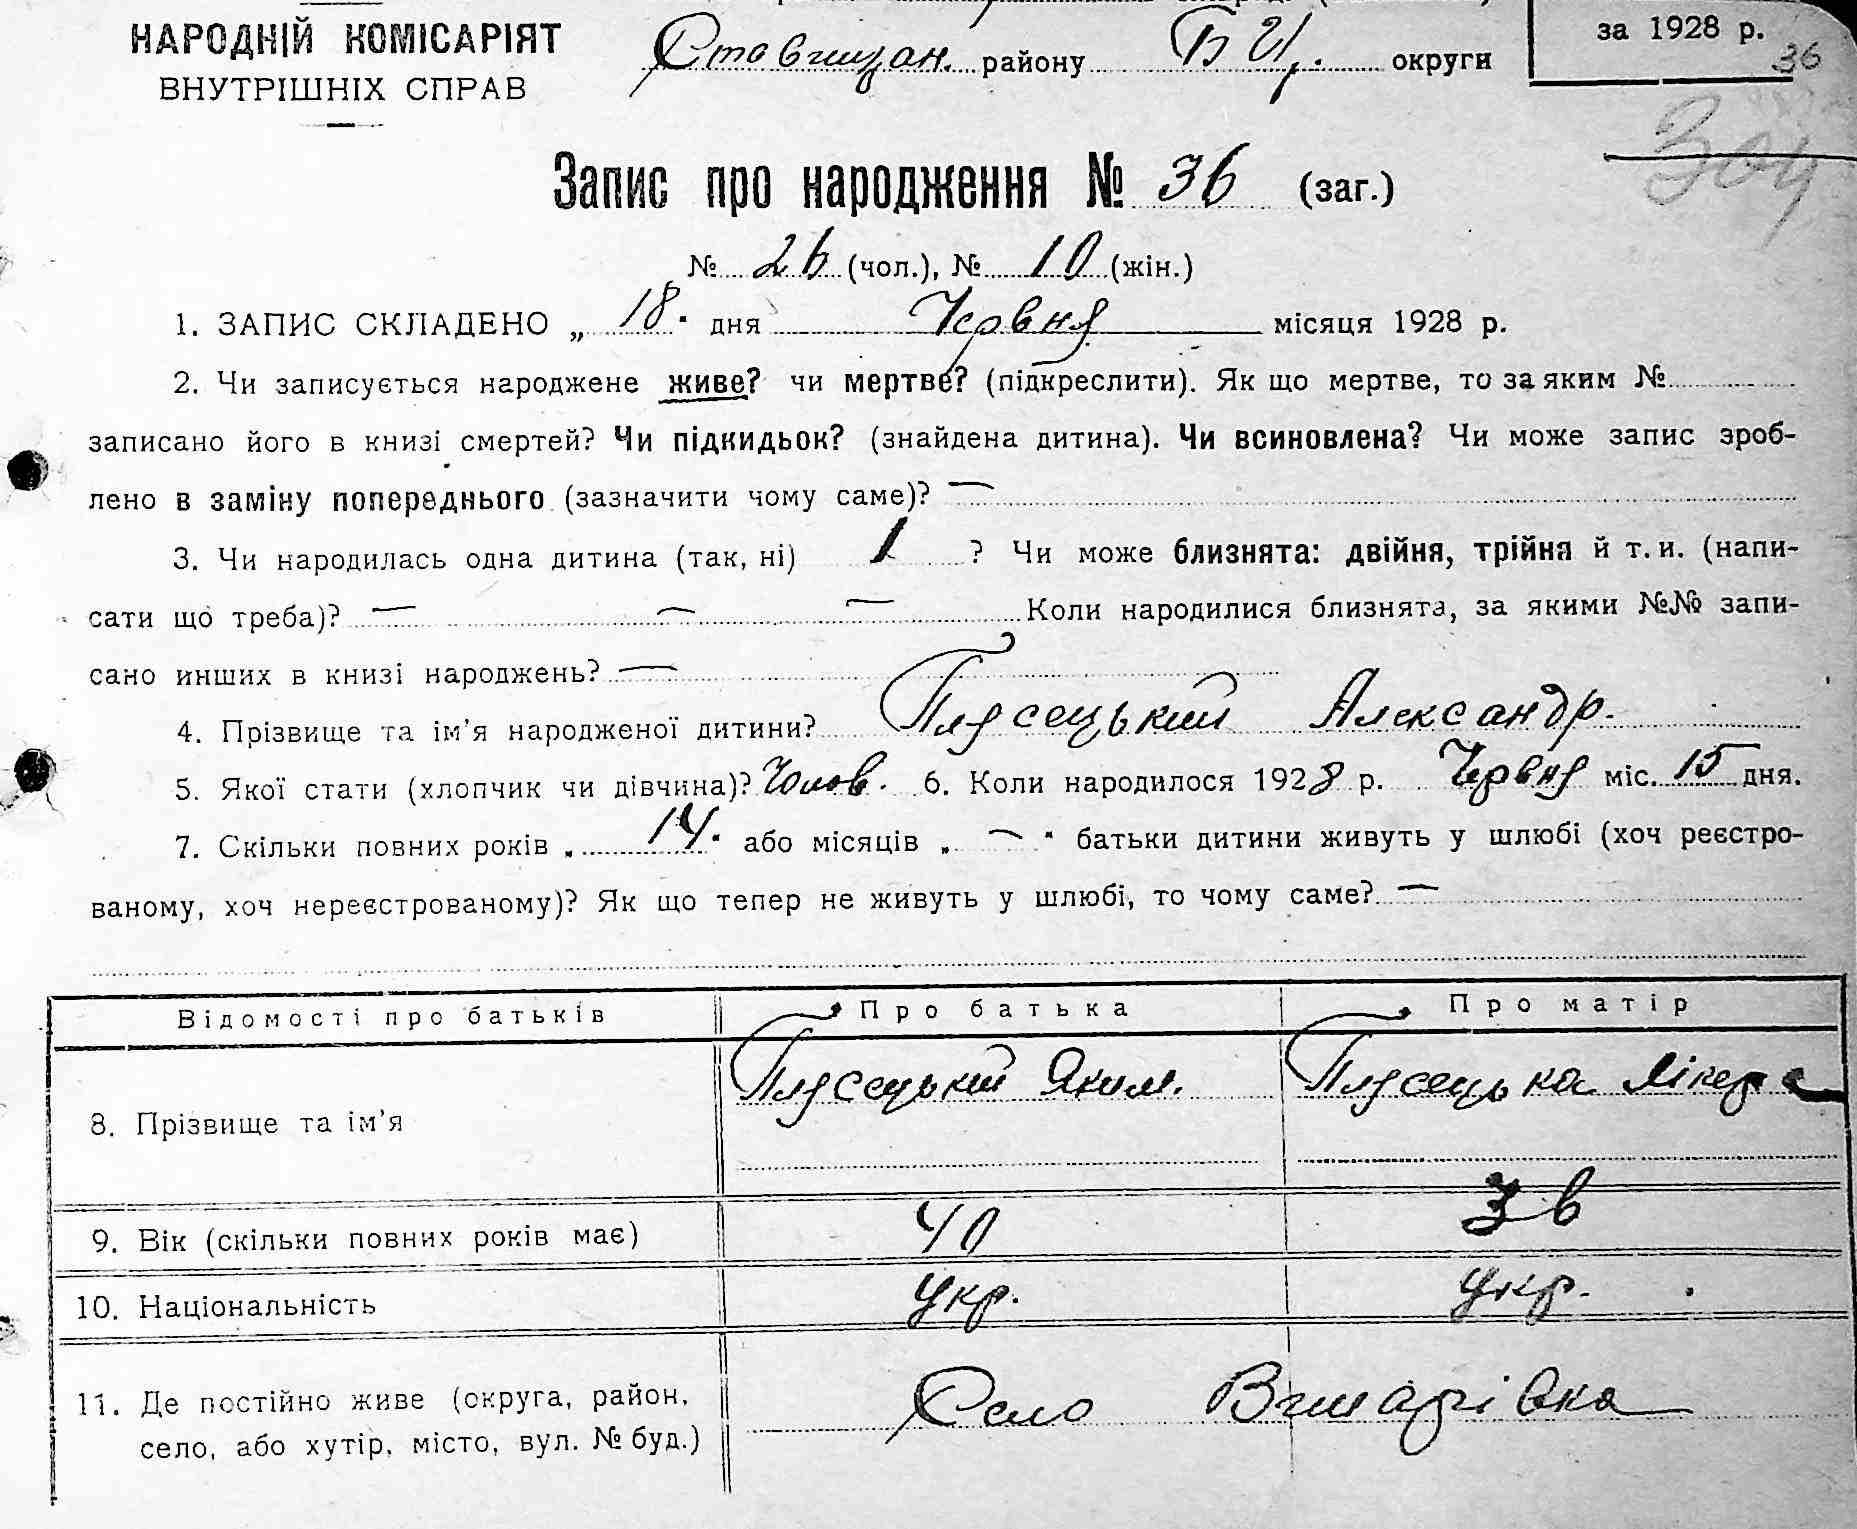 НАРОДНІЙ КОМІСАРІЯТ
ВНУТРІШНІХ СПРАВ
Ставищан. району Б Ц. округи
за 1928 р.
36
304
Запис про народження № 36 (заг.)
№ 26 (чол.), № 10 (жін.)
1. ЗАПИС СКЛАДЕНО „ 18 " дня Червня місяця 1928 р.
2. Чи записується народжене живе? чи мертве? (підкреслити). Як що мертве, то за яким №
записано його в книзі смертей? Чи підкидьок? (знайдена дитина). Чи всиновлена? Чи може запис зроб-
лено в заміну попереднього (зазначити чому саме)? —
3. Чи народилась одна дитина (так, ні) 1 ? Чи може близнята: двійня, трійня й т. и. (напи-
сати що треба)? — — — Коли народилися близнята, за якими №№ запи-
сано инших в книзі народжень? —
4. Прізвище та ім'я народженої дитини? Плясецький Александр.
5. Якої стати (хлопчик чи дівчина)? Чолов. 6. Коли народилося 1928 р. Червня міс. 15 дня.
7. Скільки повних років „ 14 " або місяців „ — " батьки дитини живуть у шлюбі (хоч реєстро-
ваному, хоч нереєстрованому)? Як що тепер не живуть у шлюбі, то чому саме? —
Відомості про батьків Про батька Про матір
8. Прізвище та ім'я Плясецький Яким. Плясецька Лікера
9. Вік (скільки повних років має) 40 36
10. Національність Укр. Укр.
11. Де постійно живе (округа, район,
село, або хутір, місто, вул. № буд.)
Село